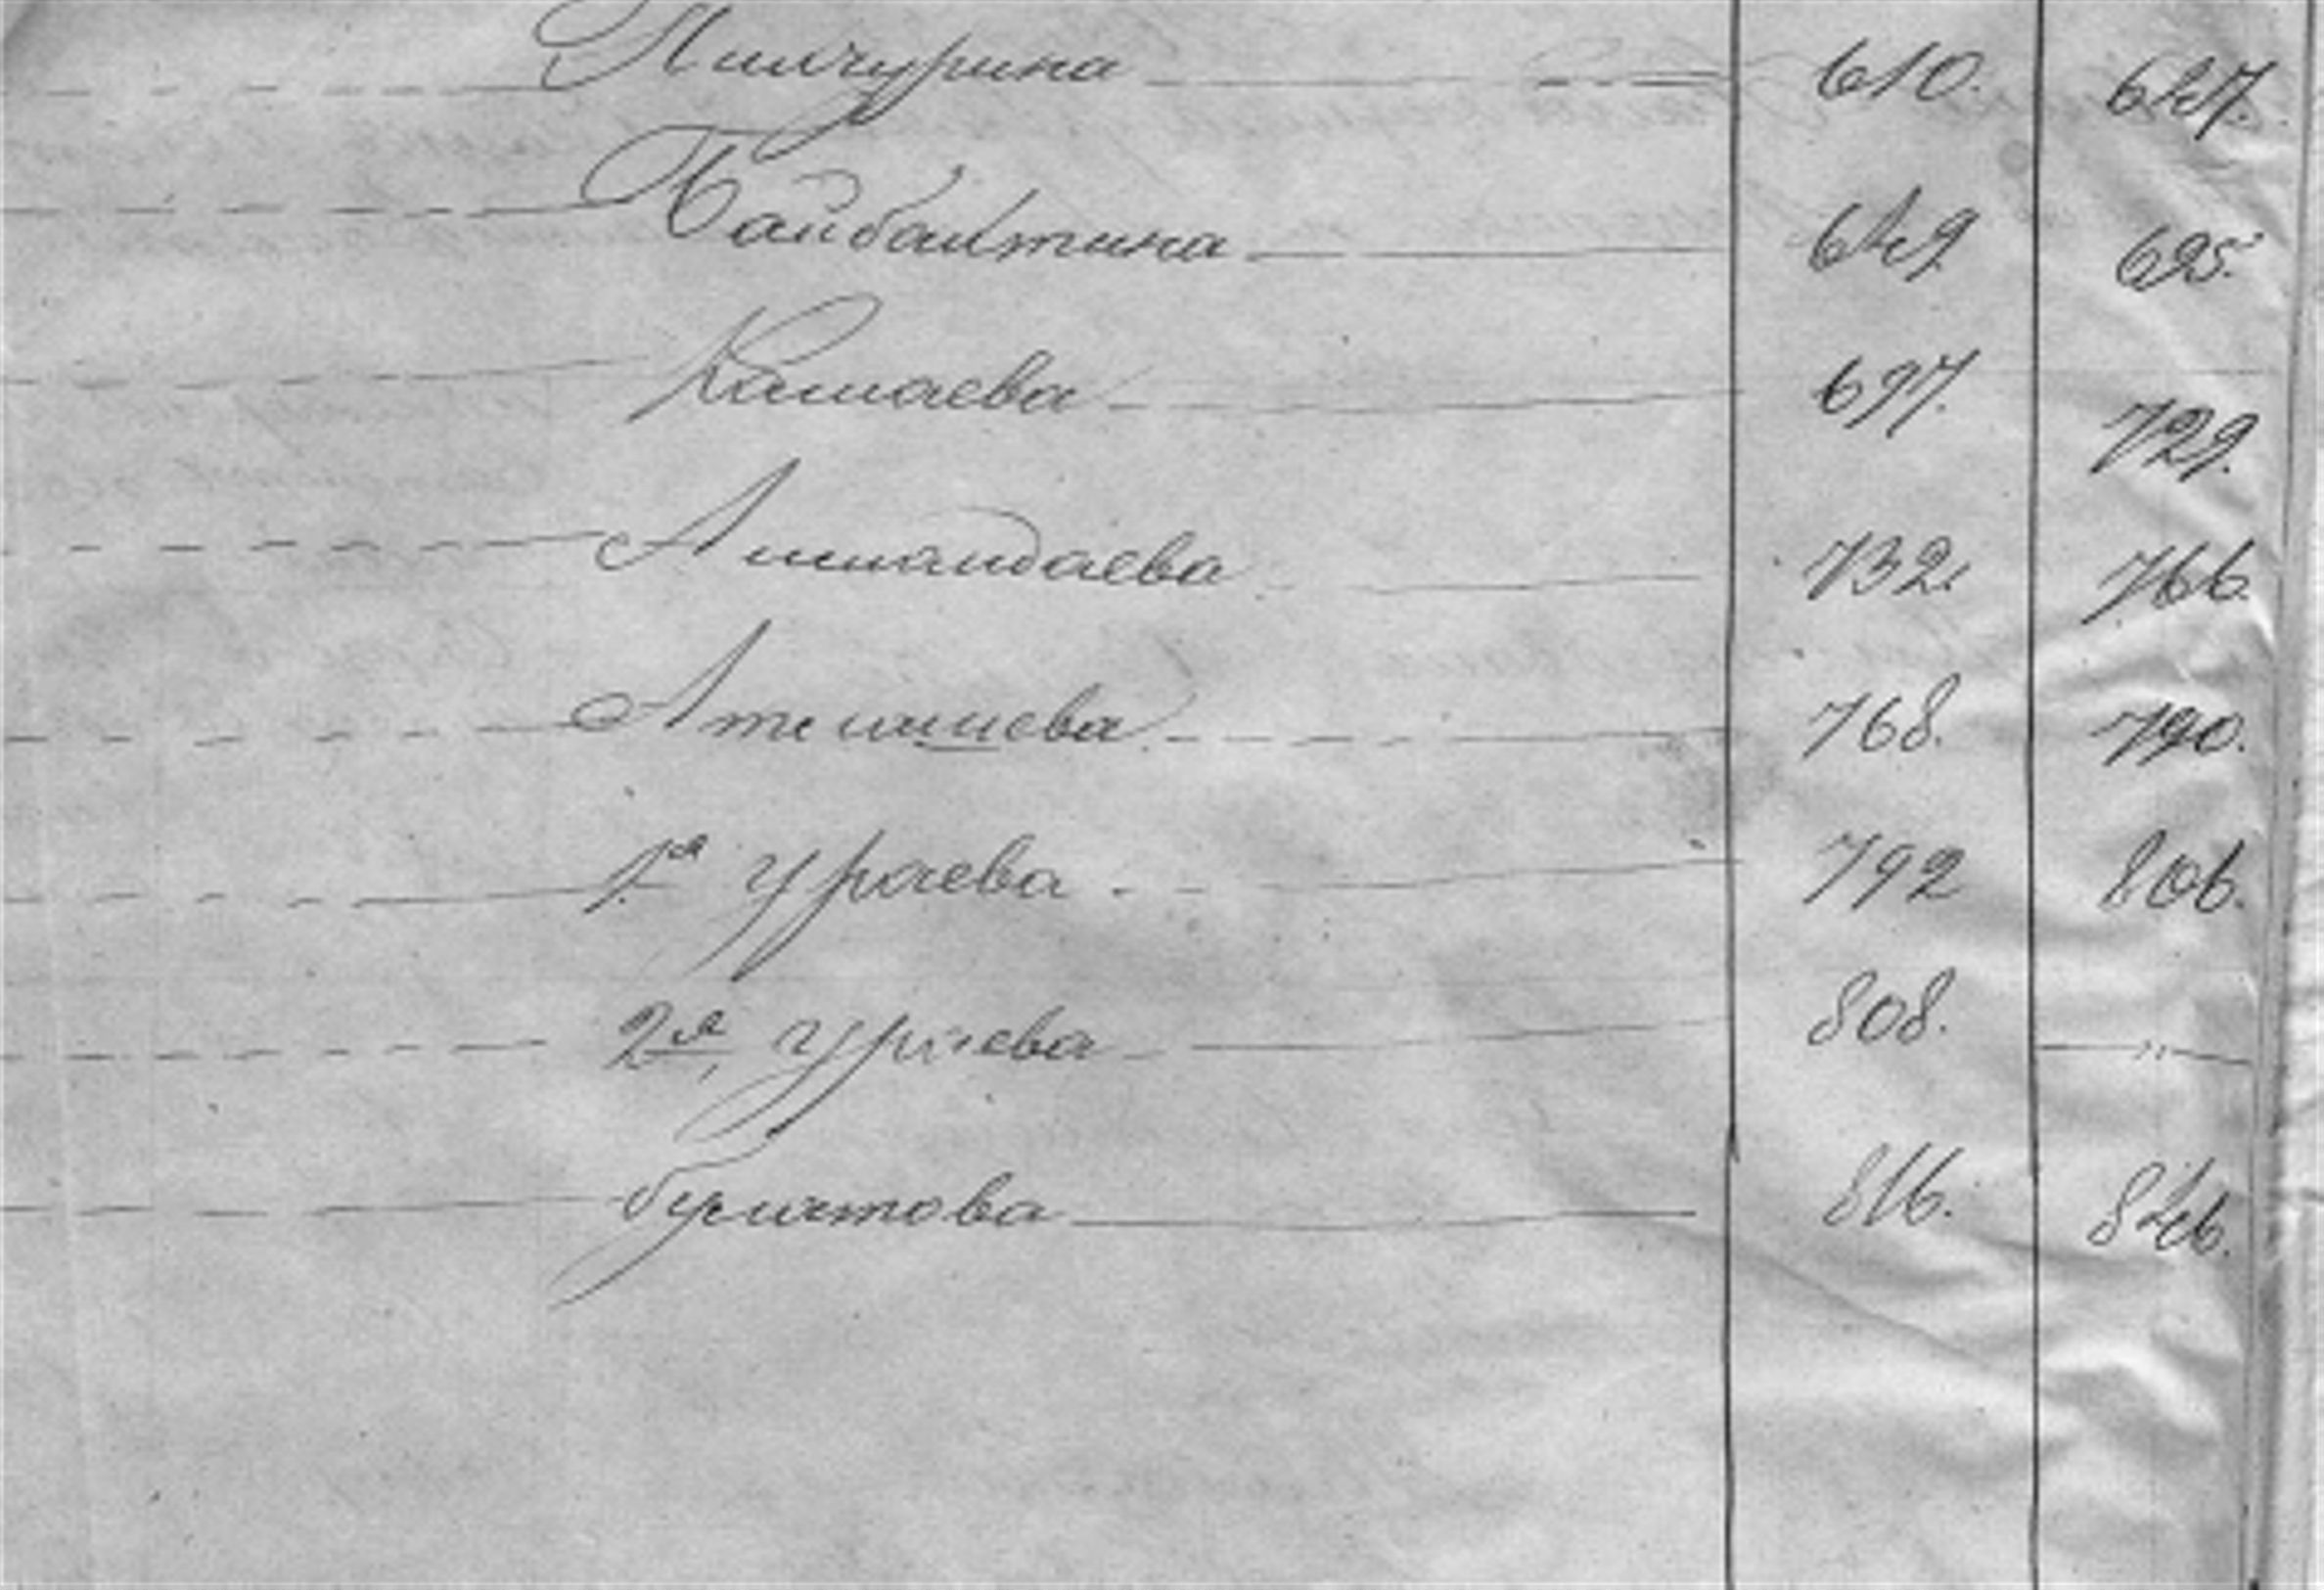 Пичурина 610. 647.
Байбахтина 649 695.
Кашаева 697. 729.
Амандаева 732. 766.
Ателяшева 768. 790.
1я Ураева 792 806.
2я Ураева 808. — " —
816. 846.